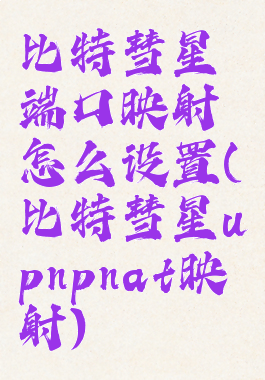 比特彗星
端口映射
怎么设置(
比特彗星u
pnpnat映
射)